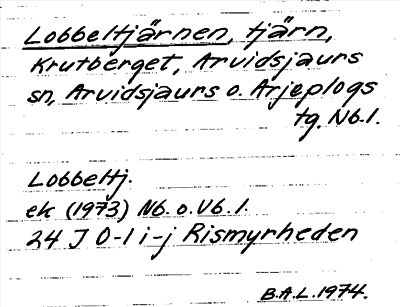 Lobbeltjärnen, tjärn,
Krutberget, Arvidsjaurs
sn, Arvidsjaurs o. Arjeplogs
tg. Nb.l.
Lobbeltj.
ek (1973) Nb. o. Vb. l.
24 J 0-1 i-j Rismyrheden
B.A.L. 1974.